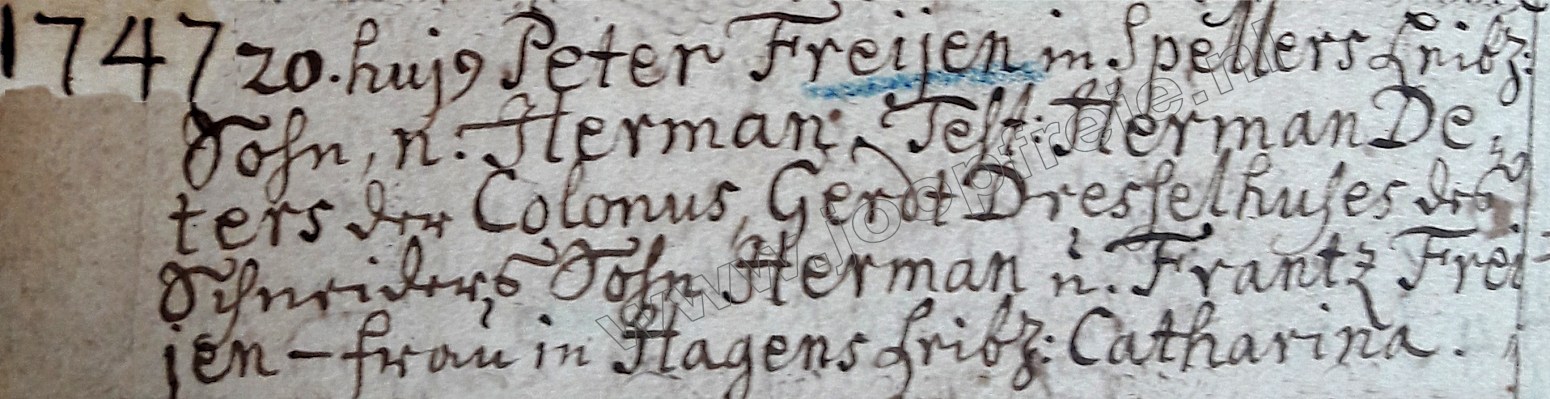 1747 20. hujꝰ Peter Freijen in Spellers Leibz:
Sohn, n. Herman. Test: Herman De,
ters der Colonus, Gerdt Dresselhuses des
Schneiders Sohn Herman ù. Frantz Frei-
jen - frau in Hagens Leibz: Catharina.
www.joopfreije.nl